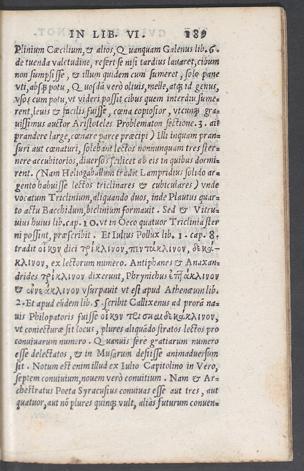 IN LIB. VI. 189
Plinium Cæcilium, & alios, Quanquam Galenus lib. 6.
de tuenda valetudine, refert se nisi tardius lauaret, cibum
non sumpsisse, & illum quidem cum sumeret, solo pane
vti, absq; potu, Quosdã verò oliuis, melle, atq; id genus,
vsos cum potu, vt videri possit cibus quem interdiu sume
rent, leuis & facilis fuisse, cœna copiosior, vtcunq; gra
uissimus auctor Aristoteles Problematon sectione .3. ait
prandere large, cœnare parce præcipi) Illi inquam pran-
suri aut cœnaturi, solebant lectos nonnunquam tres ster-
nere accubitorios, diuersos scilicet ab eis in quibus dormi
rent. (Nam Heliogabalum tradit Lampridius solido ar
gento habuisse lectos tricliniares & cubiculares) vnde
vocatum Triclinium, aliquando duos, inde Plautus quar-
to actu Bacchidum, biclinium formauit. Sed & Vitru-
uius huius lib. cap. 10. vt in Oeco quatuor Triclinia ster
ni possint, præscribit. Et Iulius Pollux lib. 1. cap. 8.
tradit οἶκον dici τρίκλινον, πεντάκλινον, δεκά-
κλινον, ex lectorum numero. Antiphanes & Anaxan
drides τρίκλινον dixerunt, Phrynichus ἑπτάκλινον
& ἐννεάκλινον vsurpauit vt est apud Athenæum lib.
2. Et apud eũdem lib. 5. scribit Callixenus ad prorã na-
uis Philopatoris fuisse οἶκον τρισκαιδεκάκλινον,
vt coniecturæ sit locus, plures aliquãdo stratos lectos pro
conuiuarum numero. Quamuis fere gratiarum numero
esse delectatos, & in Musarum desiisse animaduersum
sit. Notum est enim illud ex Iulio Capitolino in Vero,
septem conuiuium, nouem verò conuitium. Nam & Ar-
chestratus Poeta Syracusius conuiuas esse aut tres, aut
quatuor, aut nõ plures quinq; vult, alias futurum conuen-